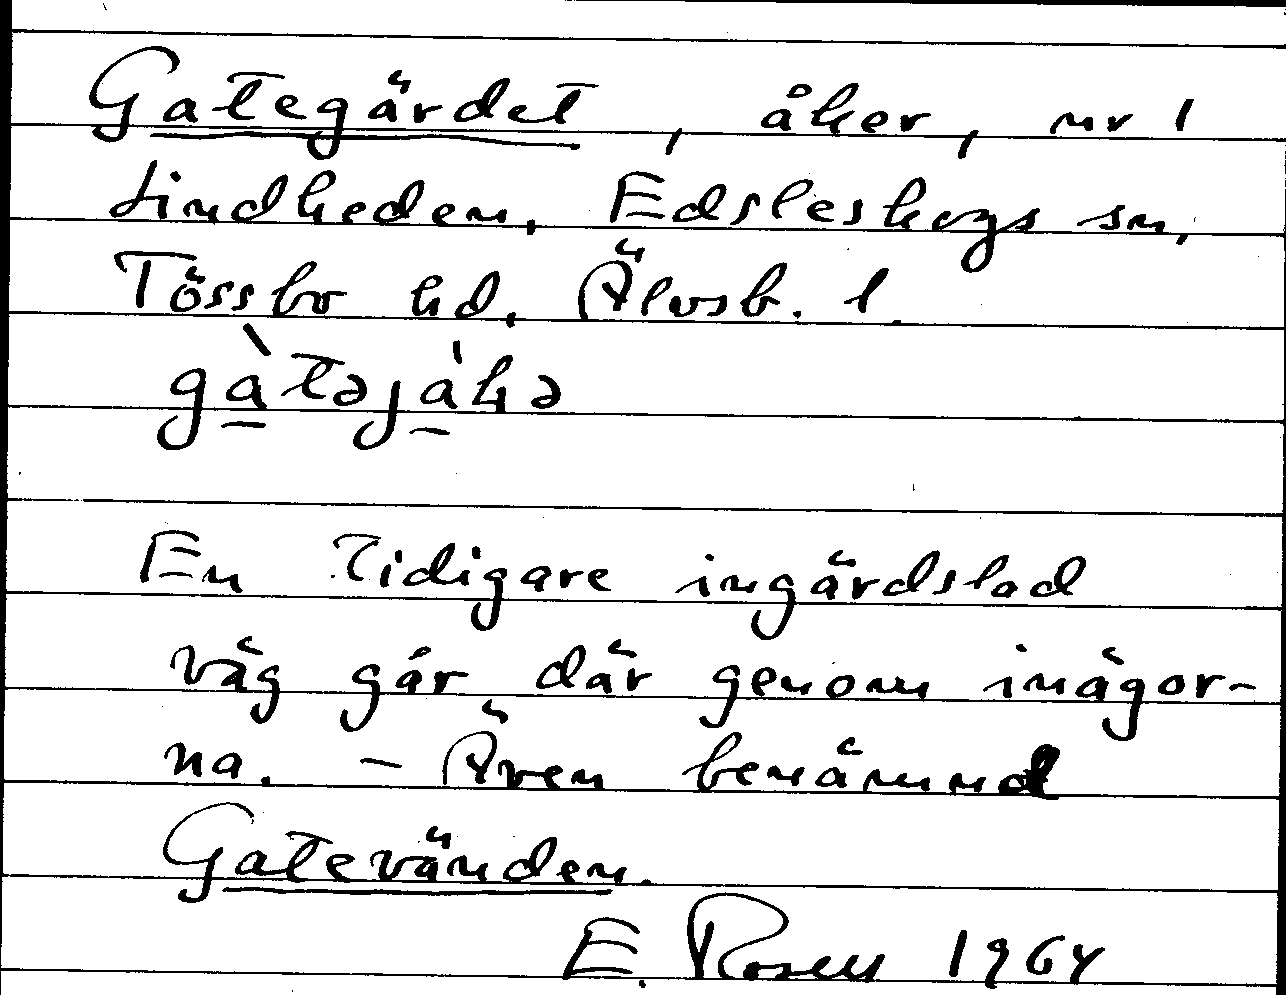 Gategärdet, åker, nr 1
Lindheden, Edsleskogs sn,
Tössbo hd, Älvsb. l.
gàtəjàɫə
En tidigare ingärdslad
väg går där genom inägor-
na. – Även benämnd
Gatevänden.
E. Rosell 1964